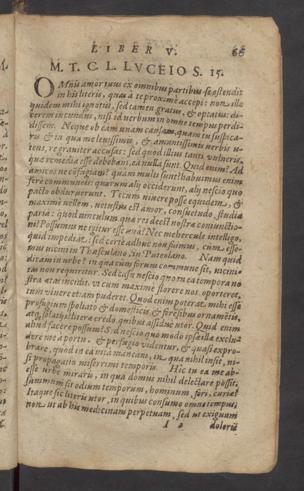 LIBER V. 66
M. T. C. L. LVCEIO S. 15.
OMnis amor tuus ex omnibus partibus se ostendit
in his literis, quas à te proximè accepi: non ille
quidem mihi ignotus, sed tamen gratus, & optatus: di-
cerem iucundus, nisi id uerbum in omne tempus perdi-
dissem. Neque ob eam unam causam, quam tu suspica-
ris & in qua me leuissimis, & amantissimis uerbis u-
tens, re grauiter accusas: sed quod illius tanti uulneris,
quæ remedia esse debebant, ea nulla sunt. Quid enim? Ad
amicos ne cōfugiam? quàm multi sunt? habuimus enim
ferè communeis: quorum alij occiderunt, alij nescio quo
pacto obduruerunt. Tecum uiuere posse equidem, &
maximè uellem. uetustas est amor, consuetudo, studia
paria: quod uinculum quasi est nostræ coniunctio-
nis? Possumus ne igitur esse unà? Nec mehercule intellego,
quid impediat: sed certè adhuc non fuimus, cum esse-
mus uicini in Thusculano, in Puteolano. Nam quid
dicam in urbe? in qua cùm forum commune sit, uicini-
tas non requiritur. Sed casu nescio quo in ea tempora no-
stra ætas incidit, ut cum maximè florere nos oporteret,
tum uiuere etiam puderet. Quod enim poterat mihi esse
profugium spoliato & domesticis & forēsibus ornamētis,
atq; solatijs? literæ credo, quibus assiduè utor. Quid enim
aliud facere possum? Sed nescio quo modo ipsæ illæ exclu-
dere me à portu, & perfugio uidentur, & quasi expro-
brare, quod in ea uita maneam, in qua nihil insit, ni-
si propagatio miserrimi temporis. Hic tu ea me ab-
esse urbe miraris, in qua domus nihil delectare possit,
summum sit odium temporum, hominum, fori, curiæ?
Itaque sic literis utor, in quibus consumo omne tempus,
non ut ab his medicinam perpetuam, sed ut exiguam
I 2 doloris